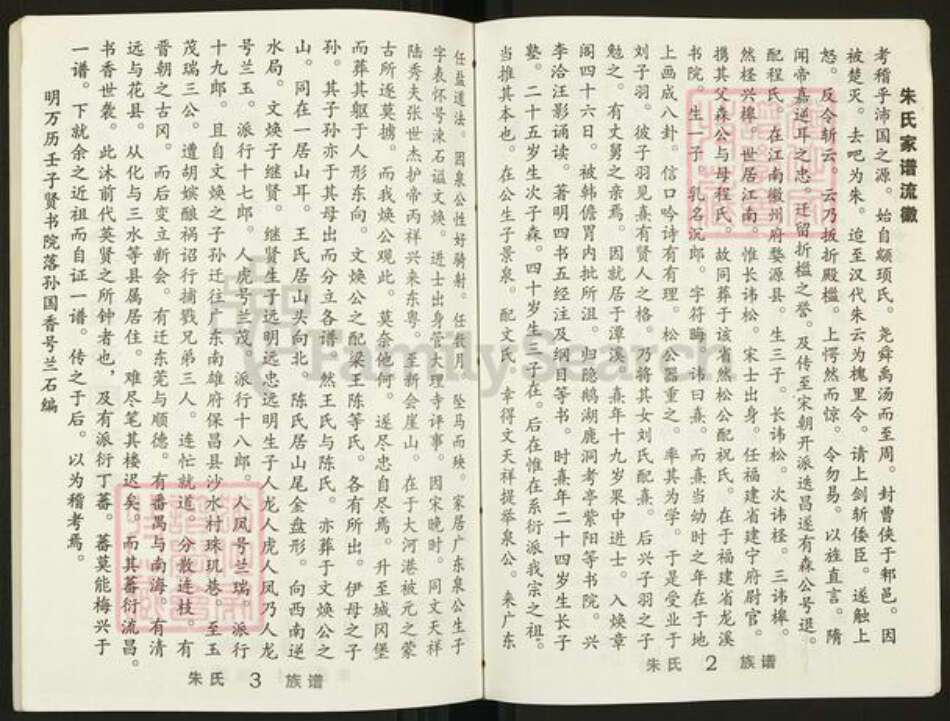 朱氏家谱流徽
考稽乎沛国之源。始自颛顼氏。尧舜禹汤而至周。封曹侠于邾邑。因
被楚灭。去吧为朱。迨至汉代朱云为槐里令。请上剑斩倭臣。遂触上
怒。反令斩云。云乃扳折殿槛。上愕然而惊。令勿易。以旌直言。隋
闻帝嘉逆耳之忠。迁留折槛之誉。及传至宋朝开派迭昌遂有森公号退。
配程氏。在江南徽州府婺源县。生三子。长讳松。次讳柽。三讳槔。
然柽兴槔。世居江南。惟长讳松。宋士出身。任福建省建宁府尉官。
携其父森公与母程氏。故同葬于该省然松公配祝氏。在于福建省龙溪
书院。生一子。乳名沉郎。字符晦。讳曰熹。而熹当幼时之年在于地
上画成八卦。信口吟诗有有理。松公器重之。率其为学。于是受业于
刘子羽。彼子羽见熹有贤人之格。乃将其女刘氏配熹。后兴子羽之子
勉之。有丈舅之亲焉。因就居于潭溪。熹年十九岁果中进士。入焕章
阁四十六日。被韩儋胃内批所沮。归隐鹅湖鹿洞考亭紫阳等书院。兴
李洽汪影诵读。著明四书五经注及纲目等书。时熹年二十四岁生长子
塾。二十五岁生次子森。四十岁生三子在。后在惟在系衍派我宗之祖。
当推其本也。在公生子景泉。配文氏。幸得文天祥提举泉公。来广东
朱氏 2 族谱
任盐道法。因泉公性好骑射。任数月。坠马而殃。家居广东泉公生子
字表怀号涑石谥文焕。进士出身管大理寺评事。因宋晚时。同文天祥
陆秀夫张世杰护帝丙祥兴来东粤。至新会崖山。在于大河港被元之蒙
古所逐莫掳。而我焕公观此。莫奈他何。遂尽忠自尽焉。升至城冈堡
而葬其躯于人形东向。文焕公之配梁王陈等氏。各有所出。伊母之子
孙。其子孙亦于其母出而分立各谱。然王氏与陈氏。亦葬于文焕公之
山。同在一居山耳。王氏居山头向北。陈氏居山尾金盘形。向西南逆
水局。文焕子继贤。继贤生子远明远忠远明生子人龙人虎人凤乃人龙
号兰玉。派行十七郎。人虎号兰茂。派行十八郎。人凤号兰瑞。派行
十九郎。且自文焕之子孙迁往广东南雄府保昌县沙水村珠玑巷。至玉
茂瑞三公。遭胡嫔酿祸诏行捕戮兄弟三人。连忙就道。分散连枝。有
晋朝之古冈。而后变立新会。有迁东莞与顺德。有番禺与南海。有清
远与花县。从化与三水等县属居住。难尽笔其楼迟矣。而其蕃衍流昌。
书香世袭。此沐前代英贤之所钟者也，及有派衍丁蕃。蕃莫能梅兴于
一谱。下就余之近祖而自证一谱。传之于后。以为稽考焉。
明万历壬子贤书院落孙国香号兰石编
朱氏 3 族谱
FamilySearch